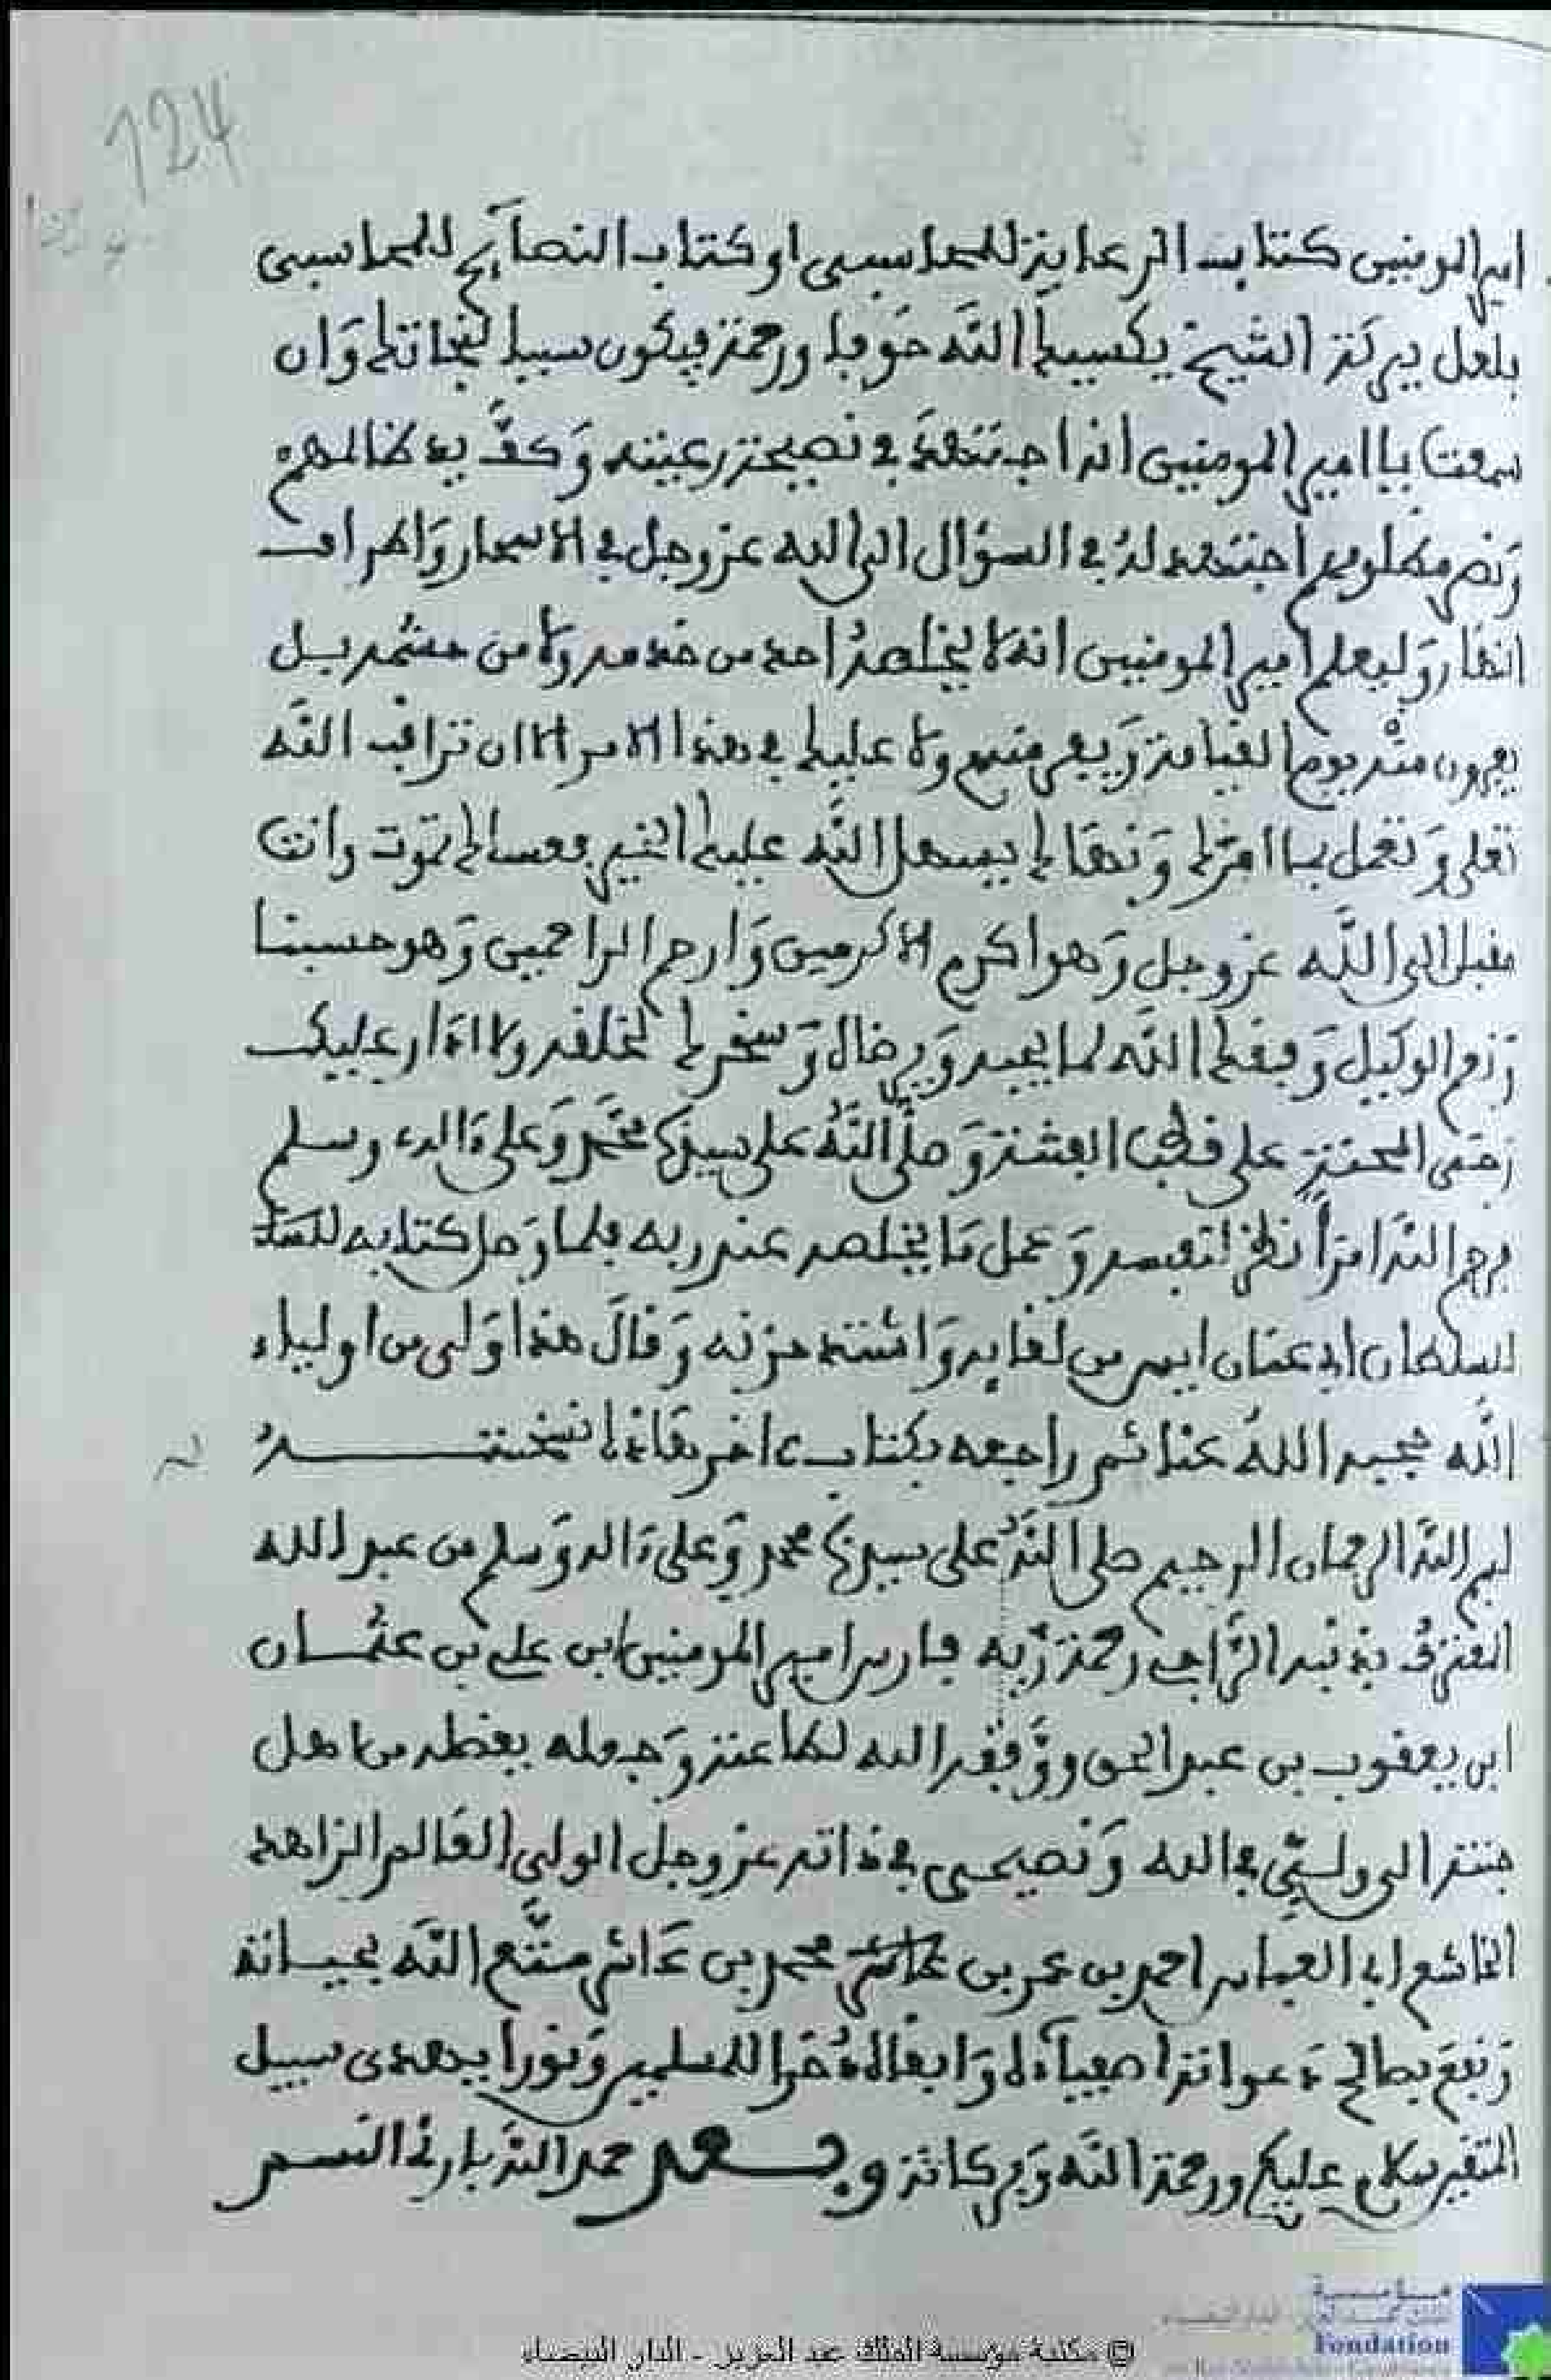 124
امير المومنين كتاب الرعاية للمحاسبي او كتاب النصائح للمحاسبي
بلعل بركة الشيخ يكسيك الله خوفا ورحمة فيكون سببا لنجاتك وان
سمعت يا امير المومنين اذا اجتهد في نصيحة رعيته وكف يد ظالمهم
ونصر مظلومهم اجتهد له في السؤال الى الله عز وجل في الاسحار واطراف
النهار وليعلم امير المومنين انه لا يخلصه احد من خدمه ولا من حشمه بل
يفرون منه يوم القيامة ويفر منهم ولا عليك في هذا الامر الا ان تراقب الله
تعلى وتعمل بما امرك ونهاك يسهل الله عليك الخير فعساك تموت وانت
مقبل الى الله عز وجل وهو اكرم الاكرمين وارحم الراحمين وهو حسبنا
ونعم الوكيل وفقك الله لما يحبه ويرضاه وسخرك لخلقه ولا ادار عليك
رحى المحنة على قطب الفتنة وصلى الله على سيدنا محمد وعلى ءاله وسلم
فرحم الله امرأ نظر لنفسه وعمل ما يخلصه عند ربه فلما وصل كتابه
السلطان ابي عنان ايس من لقايه واشتد حزنه وقال هذا ولي من اولياء
الله حجبه الله عنا ثم راجعه بكتاب ءاخر هاذا نسخته
بسم الله الرحمان الرحيم صلى الله على سيدنا محمد وعلى ءاله وسلم من عبد الله
المعترف بذنبه الراجي رحمة ربه فارس امير المومنين ابن علي بن عثمان
ابن يعقوب بن عبد الحق ووفقه الله لطاعته وجعله بفضله من اهل
جنته الى وليي في الله ونصيحي في ذاته عز وجل الولي العالم الزاهد
الخاشع ابي العباس احمد بن عمر بن محمد بن عاشر متع الله بحياته
ونفع بصالح دعواته اصفياءه وابقاه ذخرا للمسلمين ونورا يهدي سبيل
المتقين سلام عليكم ورحمة الله وبركاته وبعد حمد الله بارئ النسم
مؤسسة
Fondation
© مكتبة مؤسسة الملك عبد العزيز - الدار البيضاء